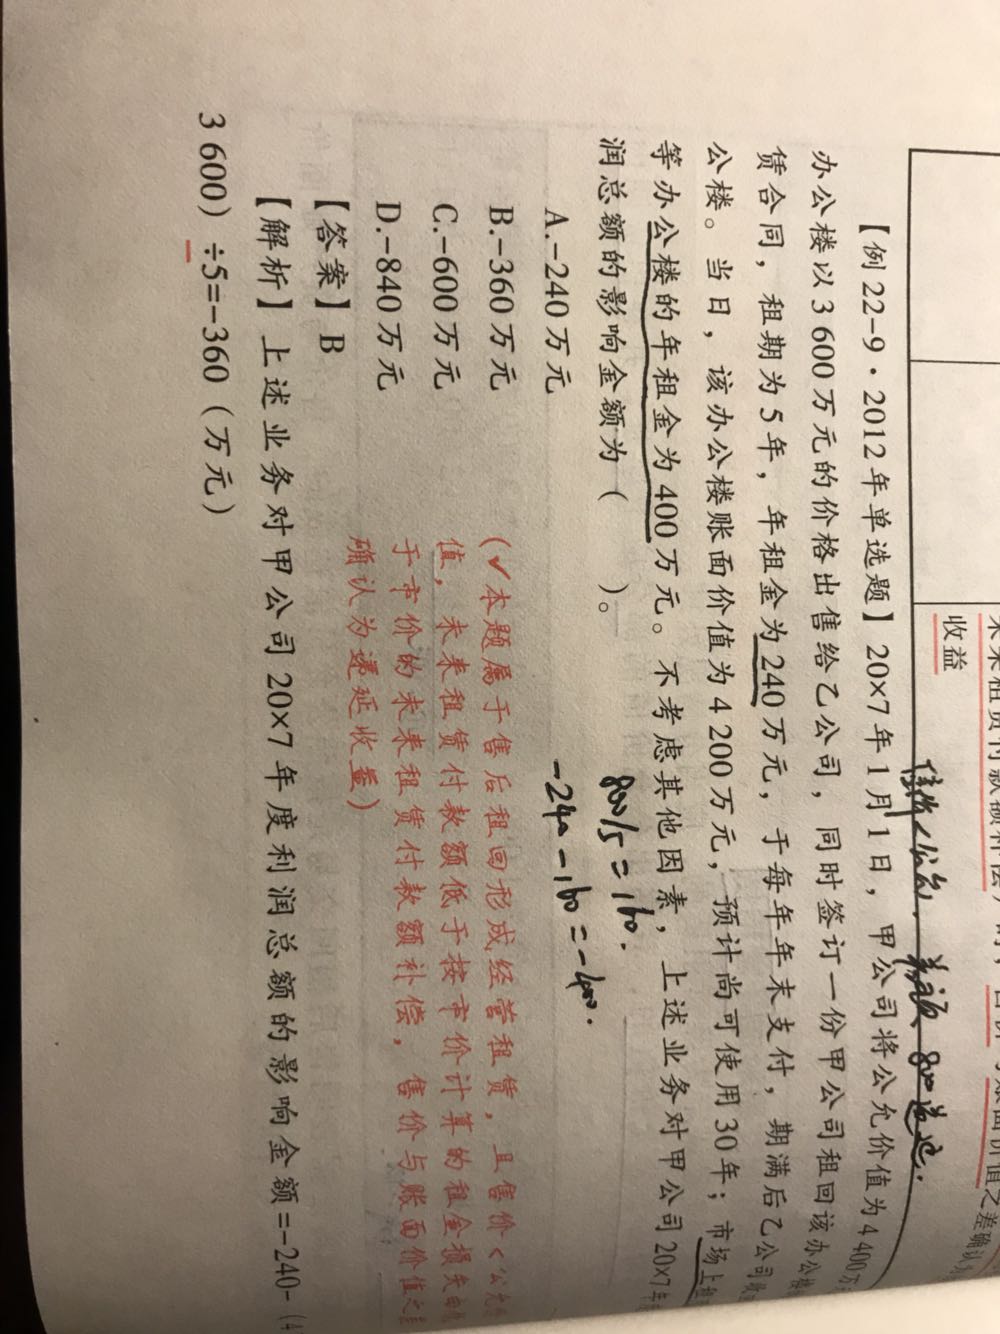 未来租赁付款额补偿
收益
售价<公允.
差额 800 递延.
【例22-9·2012年单选题】20×7年1月1日，甲公司将公允价值为4 400万
办公楼以3 600万元的价格出售给乙公司，同时签订一份甲公司租回该办公楼
赁合同，租期为5年，年租金为240万元，于每年年末支付，期满后乙公司收
公楼。当日，该办公楼账面价值为4 200万元，预计尚可使用30年；市场上
等办公楼的年租金为400万元。不考虑其他因素，上述业务对甲公司20×7年
润总额的影响金额为（ ）。
800/5=160.
A.-240万元
-240-160=-400.
B.-360万元
C.-600万元
D.-840万元
(✓本题属于售后租回形成经营租赁，且售价<公允
值，未来租赁付款额低于按市价计算的租金损失由
于市价的未来租赁付款额补偿，售价与账面价值之
确认为递延收益)
【答案】B
【解析】上述业务对甲公司20×7年度利润总额的影响金额=-240-（4
3 600）÷5=-360（万元）